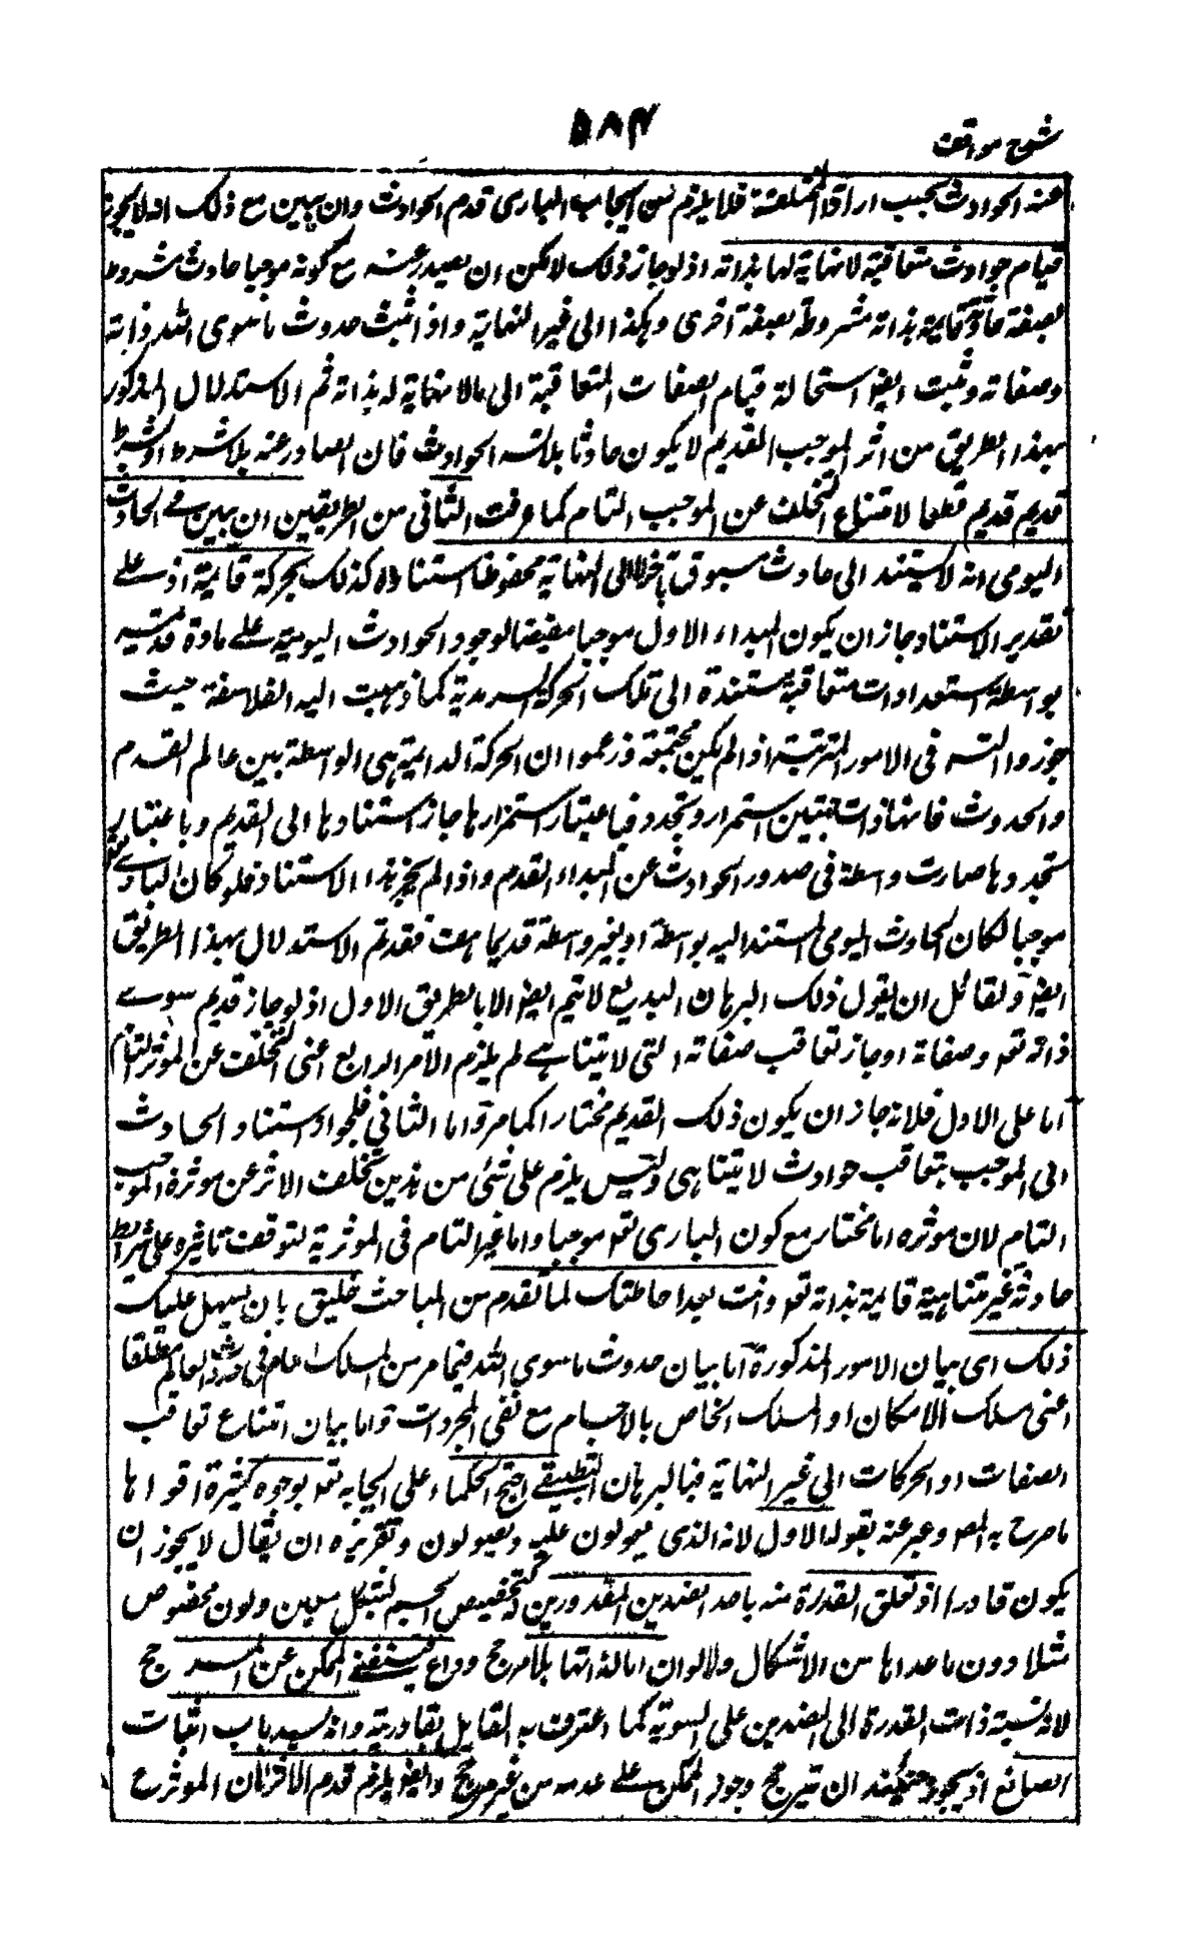 شرح مواقف
۵۸۴
عنه الحوادث بحسب اراداته المختلفة فلا يلزم من ايجاب البارى قدم الحوادث وان يبين مع ذلك انه لا يجوز
قيام حوادث متعاقبة لا نهاية لها بذاته اذ لو جاز ذلك لامكن ان يصدر عنه مع كونه موجبا حادث مشروط
بصفة حادثة قايمة بذاته مشروطة بصفة اخرى وهكذا الى غير النهاية واذا ثبت حدوث ما سوى الله ذاته
وصفاته وثبت ايضا استحالة قيام الصفات المتعاقبة الى مالا نهاية له بذاته ثم الاستدلال المذكور
بهذا الطريق من اثر الموجب القديم لا يكون حادثا بلا تسه الحوادث فان الصادر عنه بلا شرط او بشرط
قديم قديم قطعا لامتناع التخلف عن الموجب التام كما عرفت الثانى من الطريقين ان يبين فے الحادث
اليومى انه لا يستند الى حادث مسبوق بآخر لا الى النهاية محفوظا استناده كذلك بحركة قايمة اذ علے
تقدير الاستناد جاز ان يكون المبداء الاول موجبا مفيضا لوجود الحوادث اليومية علے مادة قديمة
بواسطة استعدادات متعاقبة مستندة الى تلك الحركة السرمدية كما ذهبت اليه الفلاسفة حيث
جوزوا التسه فى الامور المترتبة اذا لم يكن مجتمعة وزعموا ان الحركة الدائمية هى الواسطة بين عالم القدم
والحدوث فانها ذات جهتين استمرار وتجدد فباعتبار استمرارها جاز استنادها الى القديم وباعتبار
تجددها صارت واسطة فى صدور الحوادث عن المبداء القدم واذا لم يجز هذا الاستناد فلو كان البارے تعه
موجبا لكان الحادث اليومى المستند اليه بواسطة او بغير واسطة قديما هت فقد تم الاستدلال بهذا الطريق
ايضا ولقائل ان يقول ذلك البرهان البديع لا يتم ايضا الا بالطريق الاول اذ لو جاز قديم سوے
ذاته تعه وصفاته او جاز تعاقب صفاته التى لا يتناهے لم يلزم الامر الرابع اعنى التخلف عن الموثر التام
اما على الاول فلانه جاز ان يكون ذلك القديم مختارا كما مر واما الثانى فلجواز استناد الحادث
الى الموجب بتعاقب حوادث لا يتناهى وليس يلزم على شئى من هذين تخلف الاثر عن موثره الموجب
التام لان موثره اما مختار مع كون البارى تعه موجبا واما غير التام فى الموثرية لتوقف تاثيره على شرائط
حادثة غير متناهية قايمة بذاته تعه وانت بعد احاطتك لما تقدم من المباحث خليق بان يسهل عليك
ذلك اى بيان الامور المذكورة اما بيان حدوث ما سوى الله فيما مر من المسلك العام فى حدوث العالم مطلقا
اعنى مسلك الامكان او المسلك الخاص بالاجسام مع نفى المجردات واما بيان امتناع تعاقب
الصفات او الحركات الى غير النهاية فبالبرهان التطبيقے احتج الحكماء على ايجابه تعه بوجوه كثيرة اقواها
ما صرح به المصه وعبر عنه بقوله الاول لانه الذى يعولون عليه ويصولون وتقريره ان يقال لا يجوز ان
يكون قادرا اذ تعلق القدرة منه باحد الضدين المقدورين له كتخصيص الجسم بشكل معين ولون مخصوص
مثلا دون ما عداها من الاشكال والالوان اما لذاتها بلا مرجح وداع فيستغنے الممكن عن المرجح
لانه نسبة ذات القدرة الى الضدين على السوية كما اعترف به القايل بقادريته وانه يسد باب اثبات
الصانع اذ يجوز حينئذ ان يترجح وجود الممكن علے عدمه من غير مرجح وايضا يلزم قدم الاثر لان الموثر ع